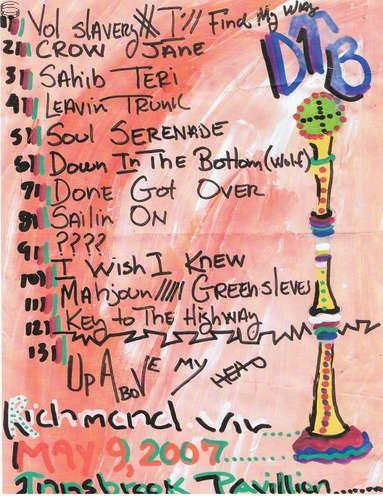 1) Vol slavery/// I'll Find My Way
DTB
2) CROW JANE
3) SAhib TERi
4) LEAVIN TRUNK
5) SOUL SERENADE
6) Down In The Bottom (Wolf)
7) DONE Got OVER
8) SAilin ON
9) ????
10) I Wish I Knew
11) MAhjoun ///// GREENsleVES
12) KEY to THE HighwAY
13)
UP ABOVE MY HEAD
Richmond Vir
MAY 9, 2007......
Innsbrook Pavillion......